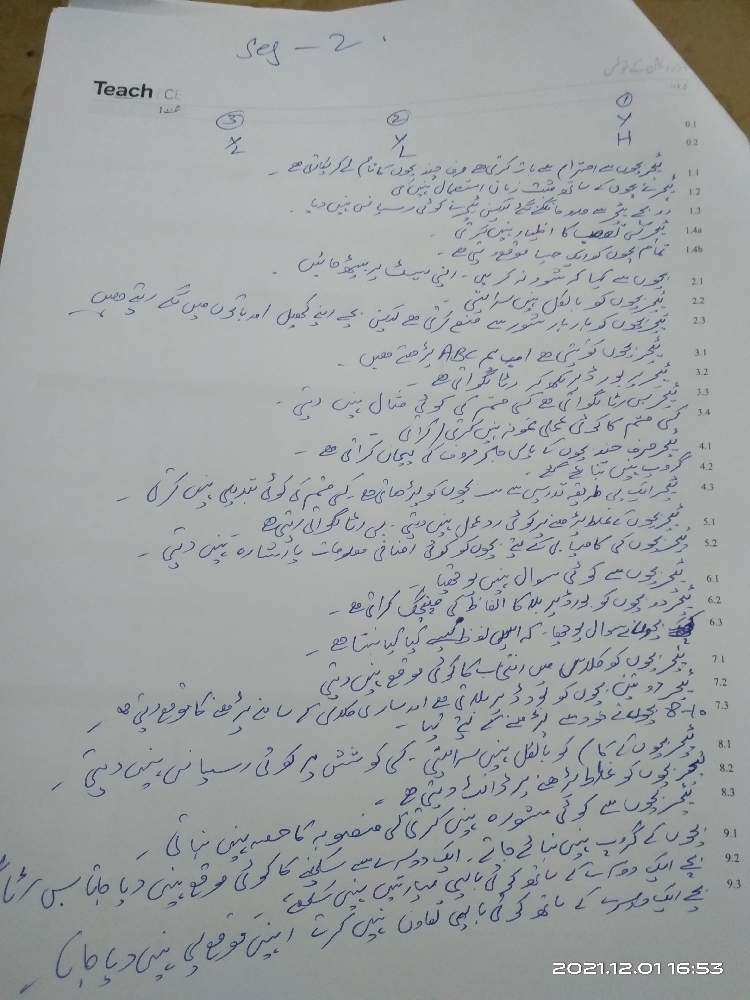 Seg - 2
Teach ECE
① ② ③
0.1 Y Y Y
0.2 H L L
1.1 ٹیچر بچوں سے احترام سے بات کرتی ہے صرف چند بچوں کا نام لے کر بلاتی ہے۔
1.2 ٹیچر نے بچوں کے ساتھ مثبت زبان استعمال نہیں کی
1.3 دو بچے ٹیچر سے مدد مانگنے گئے لیکن ٹیچر نے کوئی رسپانس نہیں دیا۔
1.4a ٹیچر کسی تعصب کا اظہار نہیں کرتی
1.4b تمام بچوں کو ایک جیسا موقع دیتی ہے۔
2.1 بچوں سے کہا کہ شور نہ کریں۔ اپنی سیٹ پر بیٹھ جائیں۔
2.2 ٹیچر بچوں کو بالکل نہیں سراہتی
2.3 ٹیچر بچوں کو بار بار شور سے منع کرتی ہے لیکن بچے اپنے کھیل اور باتوں میں لگے رہتے ہیں
3.1 ٹیچر بچوں کو بتاتی ہے اب ہم ABC پڑھتے ہیں
3.2 ٹیچر بورڈ پر لکھ کر رٹا لگواتی ہے۔
3.3 ٹیچر بس رٹا لگواتی ہے کسی قسم کی کوئی مثال نہیں دیتی۔
3.4 کسی قسم کا کوئی عملی نمونہ نہیں کرتی / کراتی
4.1 ٹیچر صرف چند بچوں کے پاس جا کر حروف کی پہچان کراتی ہے۔
4.2 گروپ نہیں بنائے گئے۔
4.3 ٹیچر ایک ہی طریقہ تدریس سے سب بچوں کو پڑھاتی ہے۔ کسی قسم کی کوئی تبدیلی نہیں کرتی۔
5.1 ٹیچر بچوں کے غلط پڑھنے پر کوئی ردعمل نہیں دیتی۔ بس رٹا لگواتی رہتی ہے
5.2 ٹیچر بچوں کی کامیابی کے لئے بچوں کو کوئی اضافی معلومات یا اشارہ نہیں دیتی۔
6.1 ٹیچر بچوں سے کوئی سوال نہیں پوچھا
6.2 ٹیچر دو بچوں کو بورڈ پر بلا کر الفاظ کی میچنگ کراتی ہے۔
6.3 بچوں نے سوال پوچھا۔ کہ اس لفظ سے کیا کیا بنتا ہے۔
7.1 ٹیچر بچوں کو کلاس میں انتخاب کا کوئی موقع نہیں دیتی
7.2 ٹیچر دو تین بچوں کو بورڈ پر بلاتی ہے اور ساری کلاس کے سامنے پڑھنے کا موقع دیتی ہے۔
7.3 8-10 بچوں نے خود سے پڑھنے کے لئے کہا۔
8.1 ٹیچر بچوں کے کام کو بالکل نہیں سراہتی۔ کسی کوشش پر کوئی رسپانس نہیں دیتی۔
8.2 ٹیچر بچوں کو غلط پڑھنے پر ڈانٹ دیتی ہے۔
8.3 ٹیچر بچوں سے کوئی مشورہ نہیں کرتی کسی منصوبہ کا حصہ نہیں بناتی۔
9.1 بچوں کے گروپ نہیں بنائے جاتے۔ ایک دوسرے سے سیکھنے کا کوئی موقع نہیں دیا جاتا بس رٹا
9.2 بچے ایک دوسرے کے ساتھ کوئی باہمی مہارتیں نہیں سیکھتے
9.3 بچے ایک دوسرے کے ساتھ کوئی باہمی تعاون نہیں کرتے انہیں موقع ہی نہیں دیا جاتا۔
2021.12.01 16:53